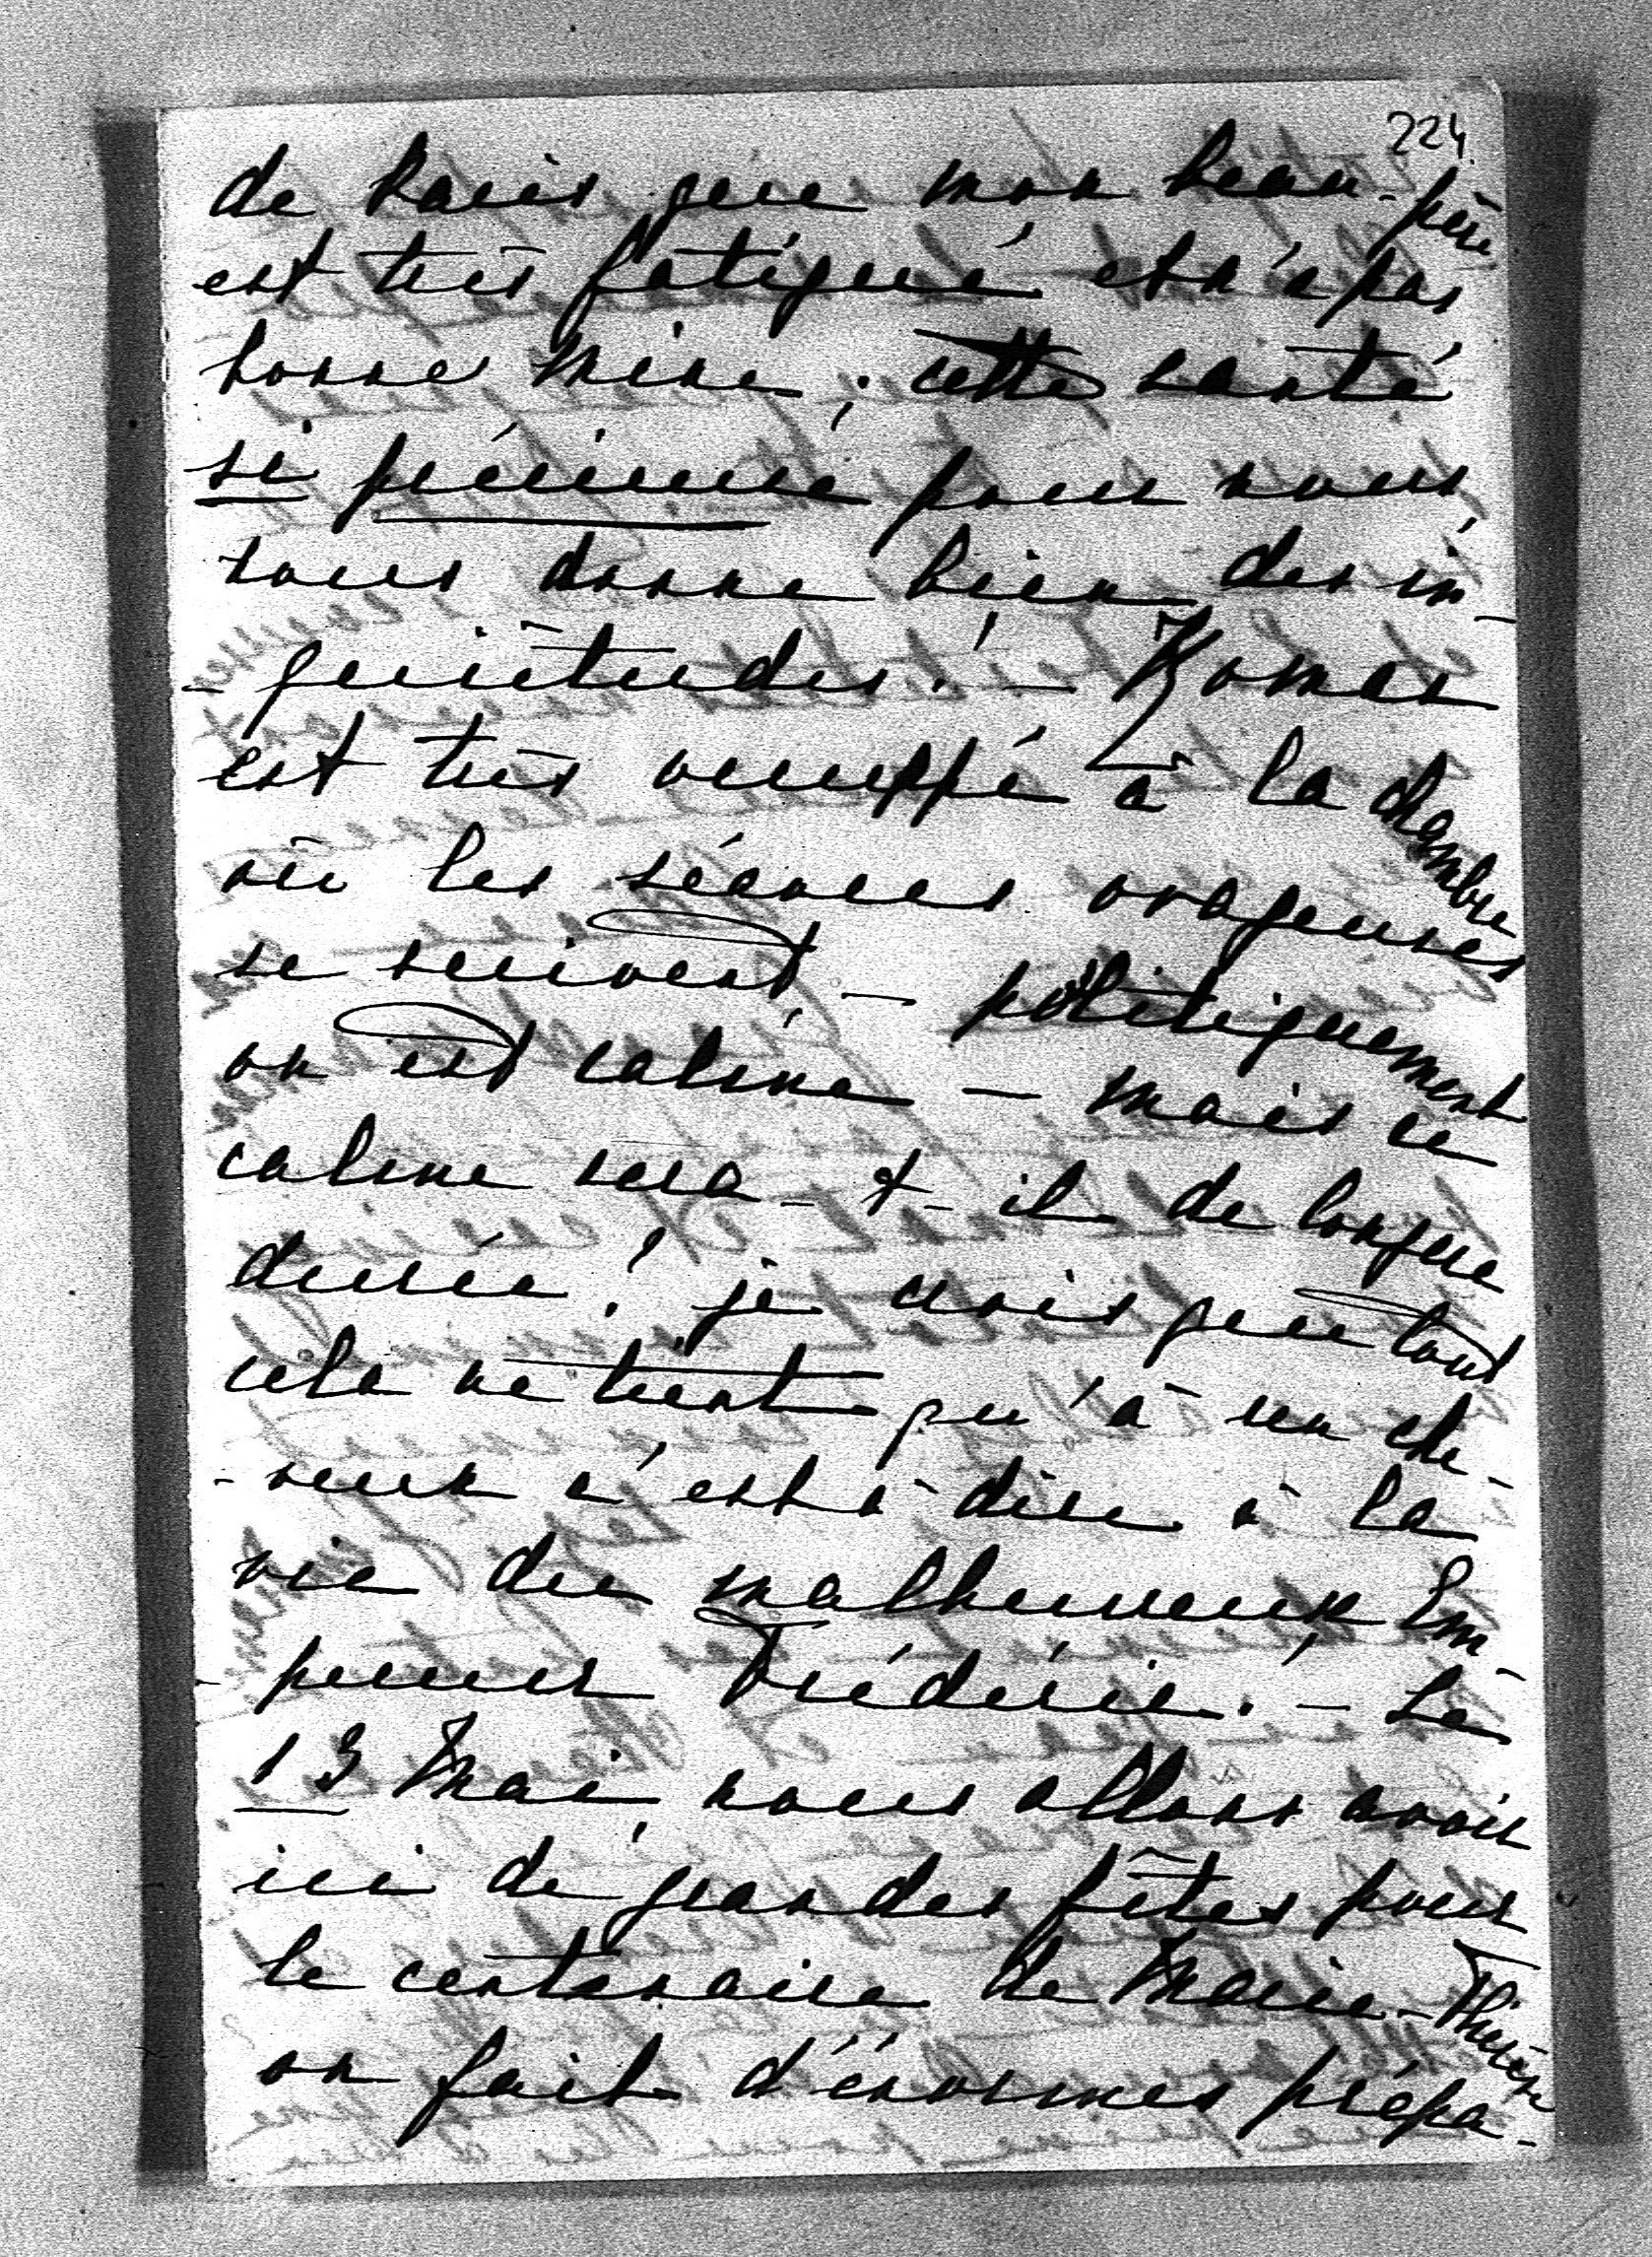 224.
de Paris que mon beau-père
est très fatigué et n'a pas
bonne mine; cette santé
si précieuse pour nous
tous donne bien des in-
-quiétudes! — Roman
est très occuppé à la chambre
où les séances orageuses
se suivent, — politiquement
on est calme — mais ce
calme sera-t-il de longue
durée! je crois que tout
cela ne tient qu'à un che-
-veux c'est à dire à la
vie du malheureux Em-
-pereur Frédéric. — Le
13 Mai, nous allons avoir
ici de grandes fêtes pour
le centenaire de Marie-Thérèse
on fait d'énormes prépa-